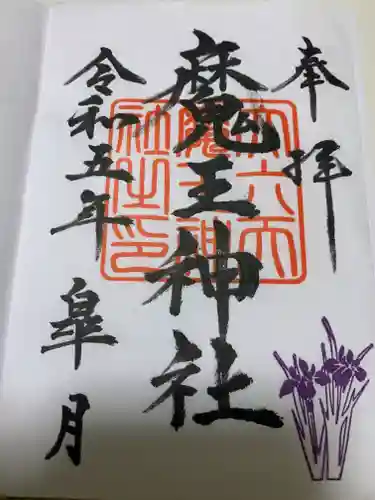 奉拝
魔王神社
令和五年 皐月